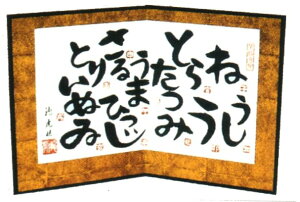 ねうし
とらう
たつみ
うまひつじ
さるとり
いぬゐ